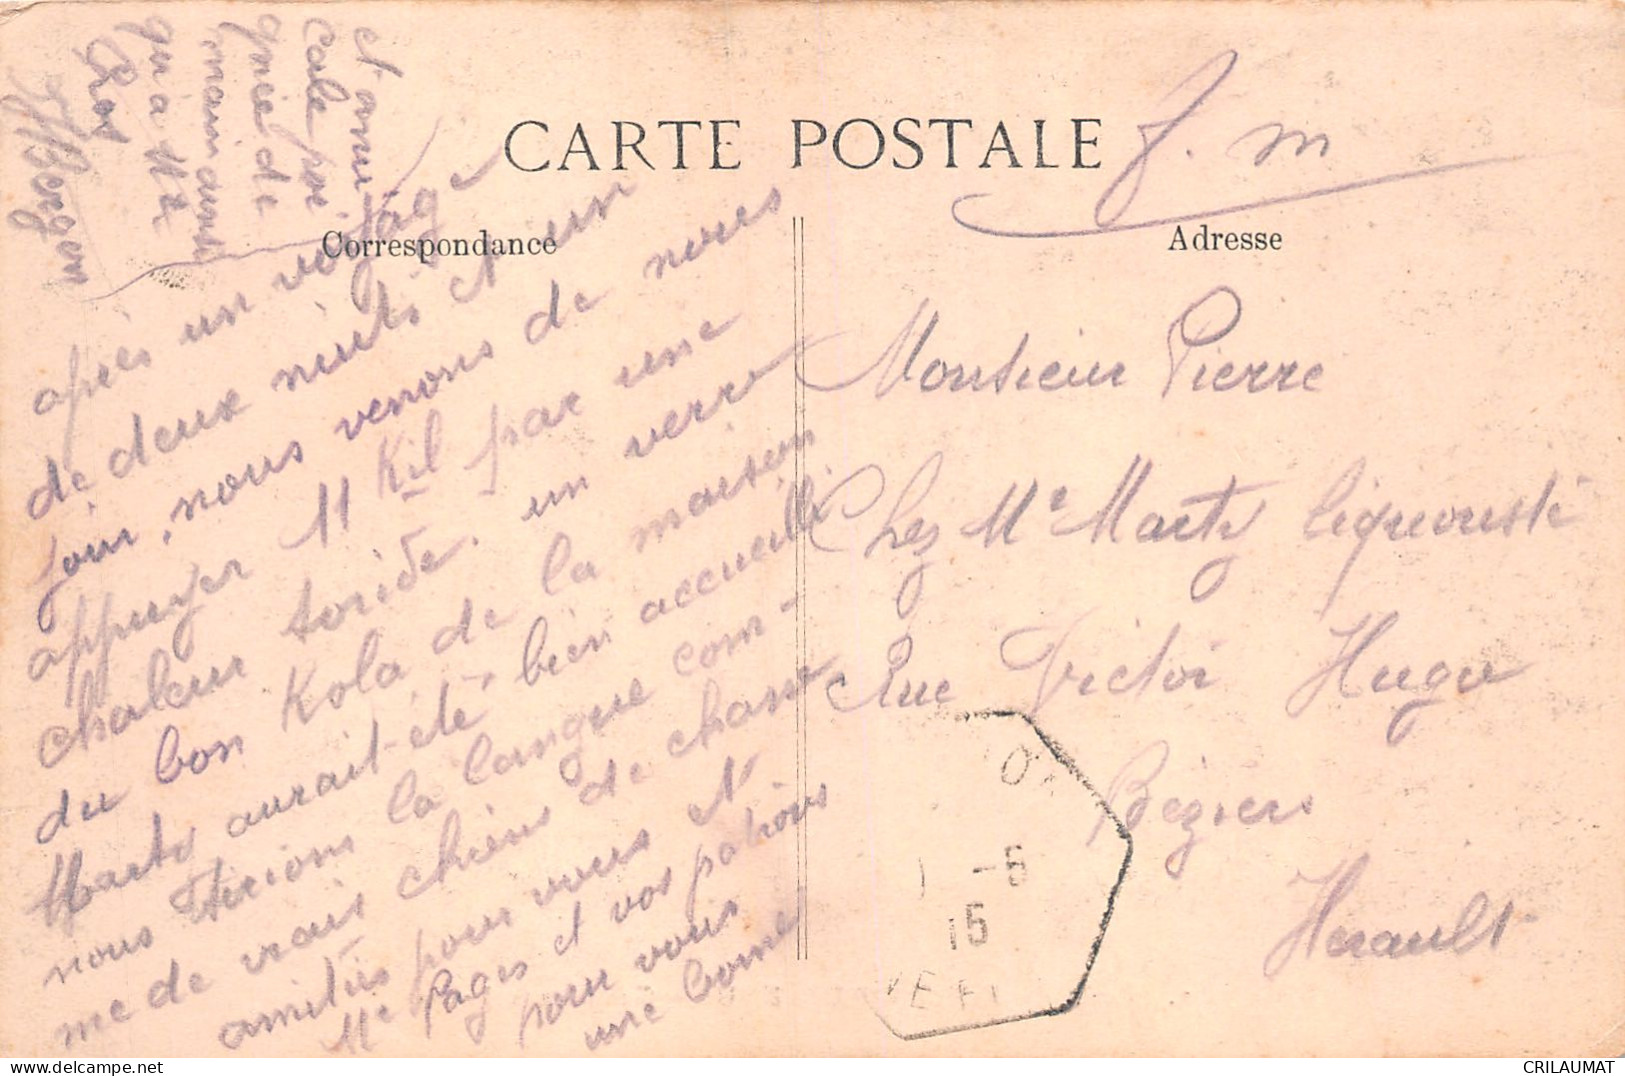 CARTE POSTALE
F. m
Correspondance
Adresse
après un voyage
de deux nuits et un
jour, nous venons de nous
appuyer 11 Kil par une
chaleur toride. un verre
du bon Kola de la maison
Marty aurait été bien accueilli
nous tirions la langue com-
me de vrais chiens de chasse
amitiés pour vous et
Me Pages et vos patrons
pour vous
une bonne
et ami
cale poi
gnée de
main ainsi
qu'à Me
Monsieur Pierre
Chez Me Marty liquoriste
Rue Victor Hugo
Béziers
Hérault
-6
15
CRILAUMAT